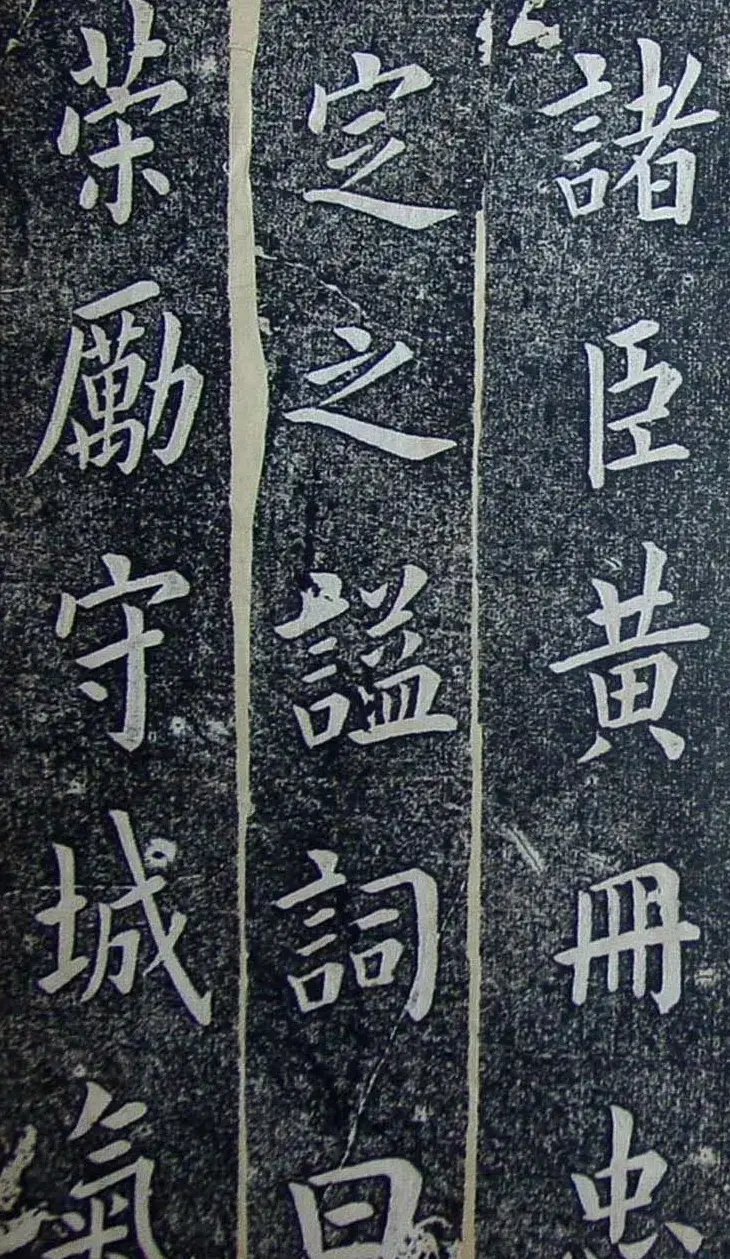 諸臣黄冊忠
定之謚詞曰
荣勵守城氣